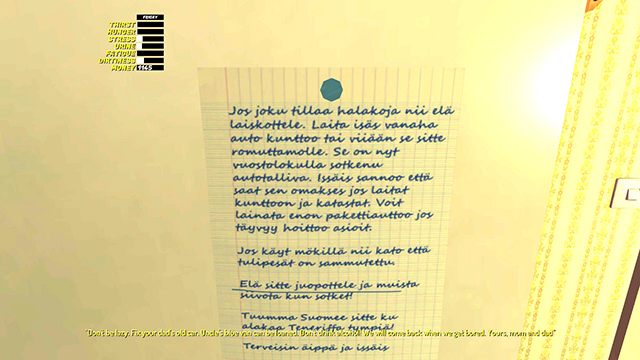 FRIDAY
THIRST
HUNGER
STRESS
URINE
FATIGUE
DIRTINESS
MONEY
Jos joku tillaa halakoja nii elä
laiskottele. Laita isäs vanaha
auto kunttoo tai viiään se sitte
romuttamolle. Se on nyt
vuostolokulla sotkenu
autotalliva. Issäis sannoo että
saat sen omakses jos laitat
kunttoon ja katastat. Voit
lainata enon pakettiauttoo jos
täyvyy hoittoo asioit.
Jos käyt mökillä nii kato että
tulipesät on sammutettu.
Elä sitte juopottele ja muista
siivota kun sotket!
Tuumma Suomee sitte ku
alakaa Teneriffa tympiä!
Terveisin äippä ja issäis
"Don't be lazy. Fix your dad's old car. Uncle's blue van can be loaned. Don't drink alcohol! We will come back when we get bored. Yours, mom and dad"